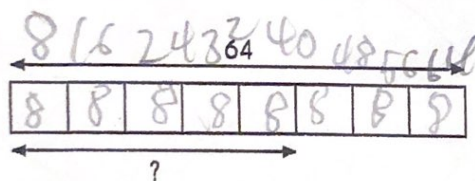 8 16 24 32 40 48 56 64
64
8 8 8 8 8 8 8 8
?